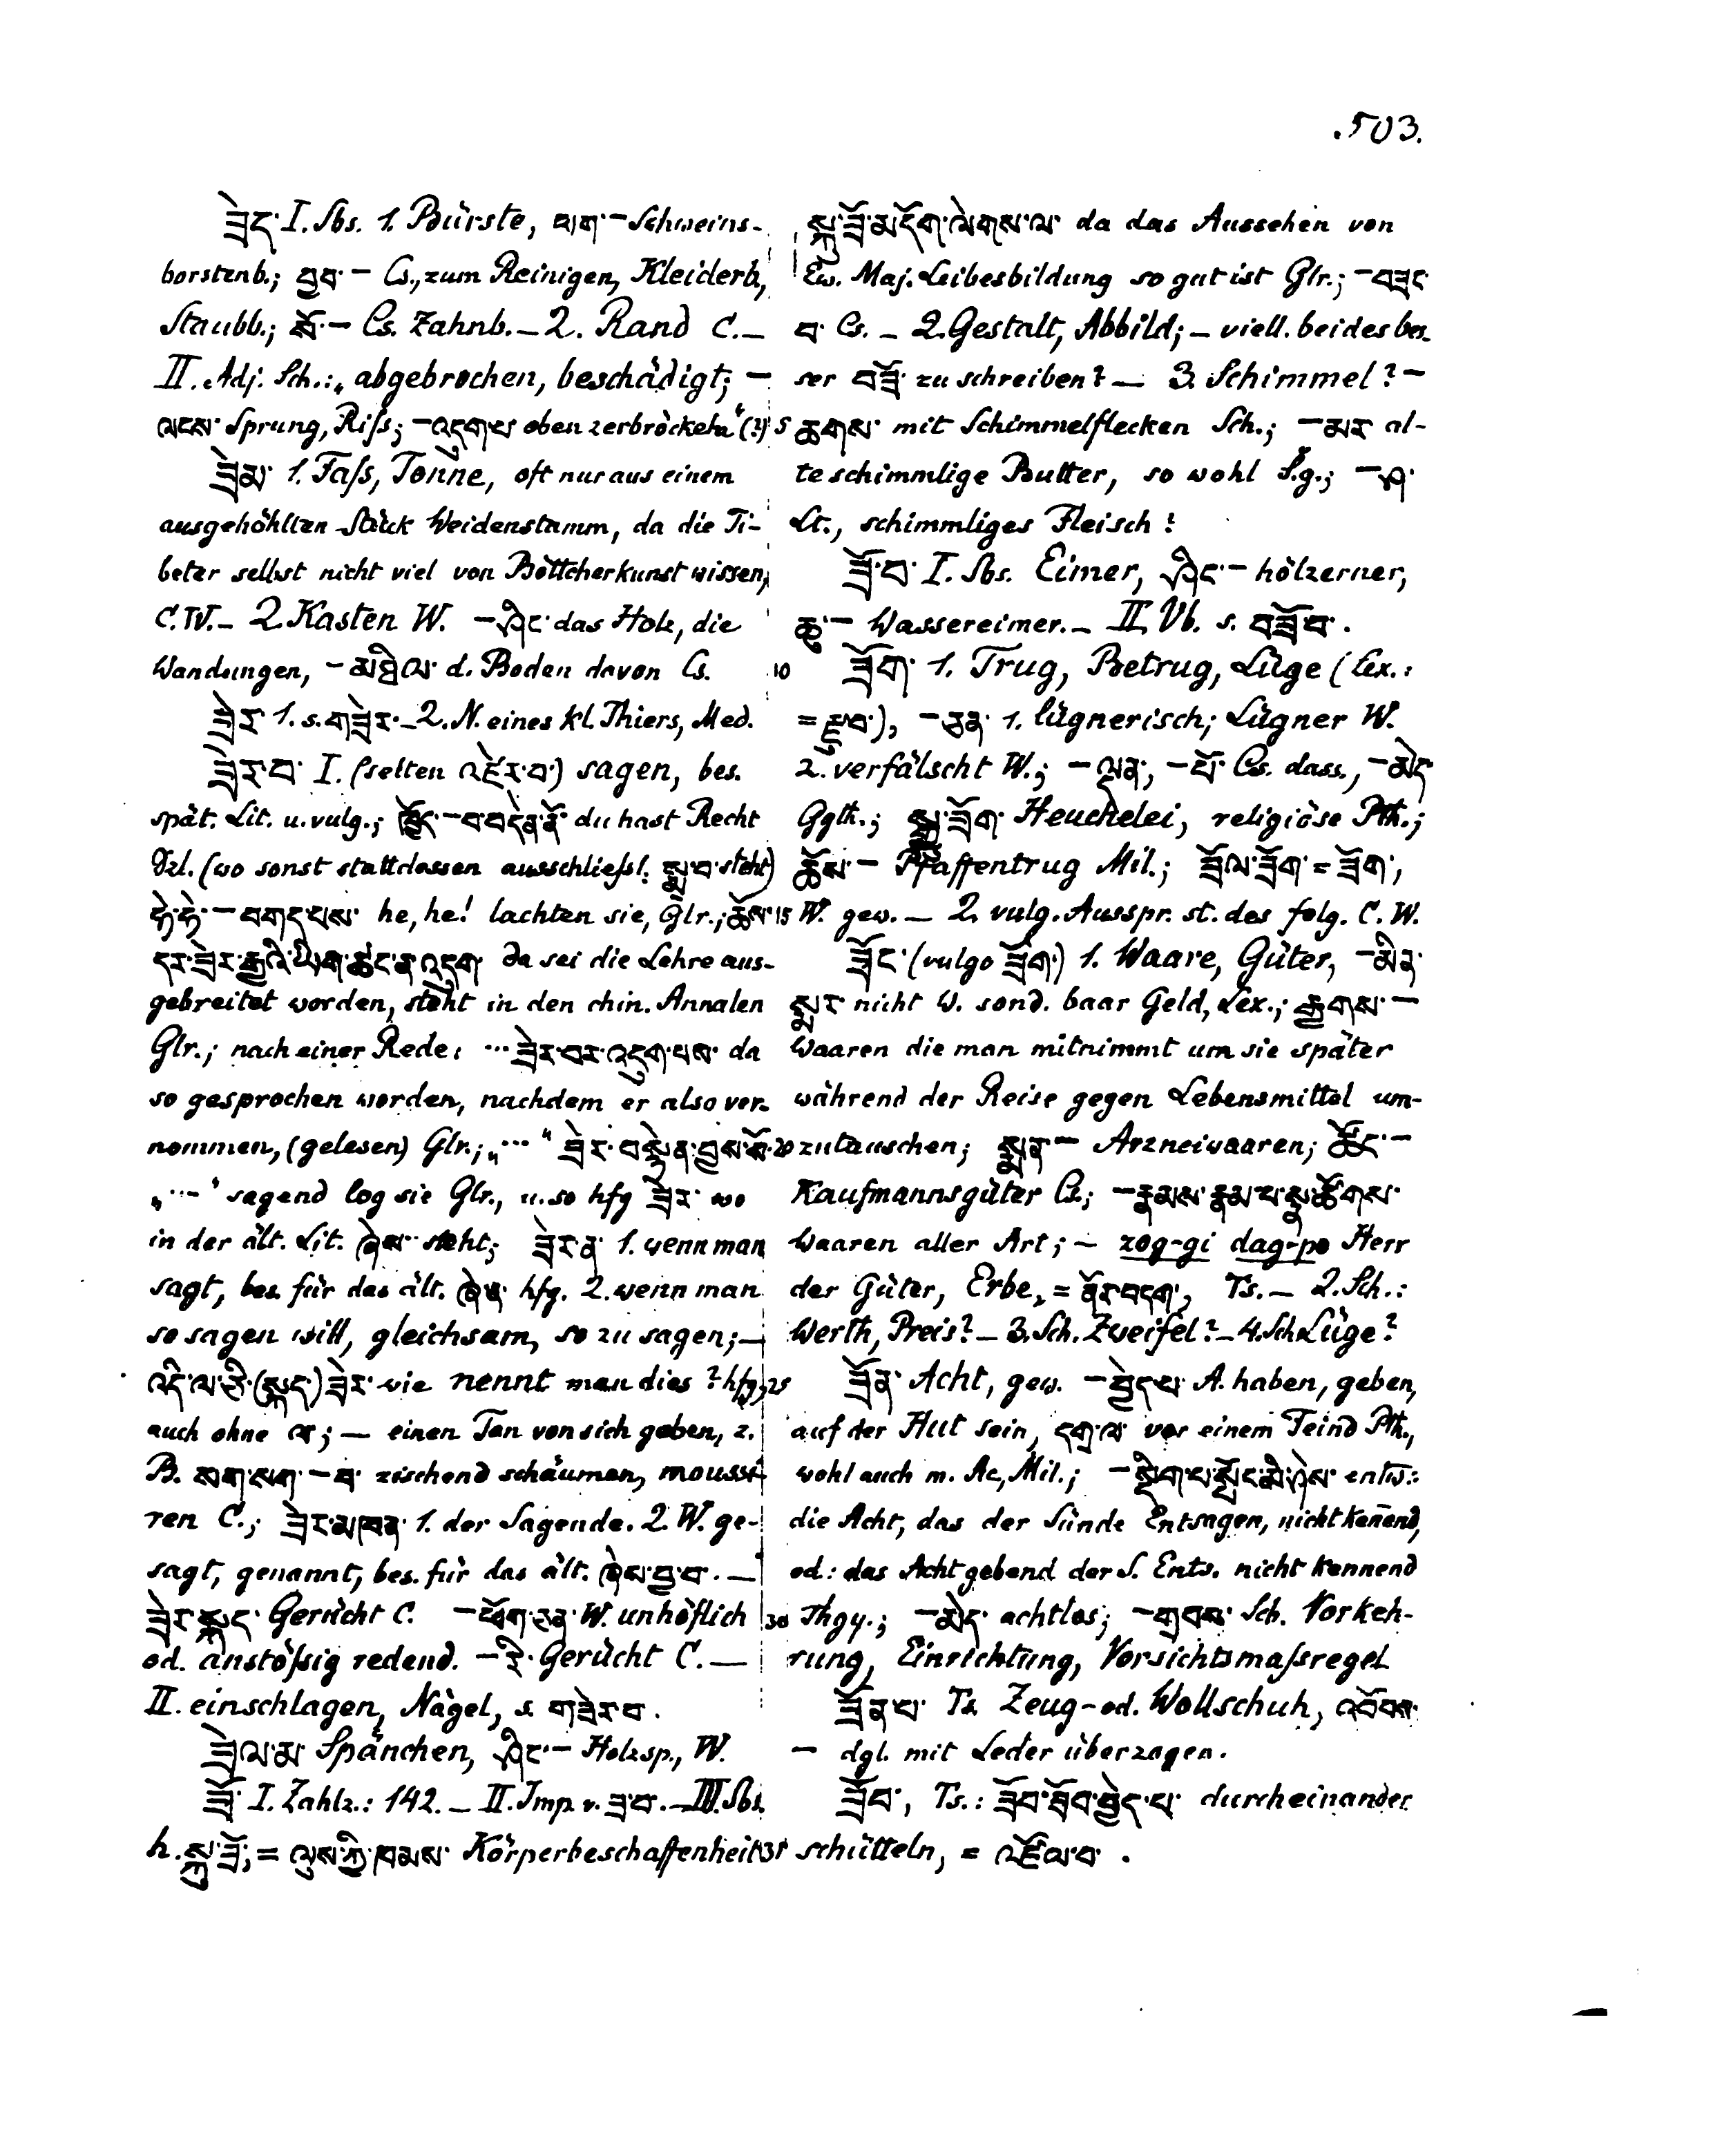 503.
ཟེད་ I. Sbs. 1. Bürste, ཕག་ – Schweins-
borstenb.; བྱབ་ – Cs., zum Reinigen, Kleiderb.,
Staubb.; སོ་ – Cs. Zahnb. – 2. Rand C. –
II. Adj. Sch.: „abgebrochen, beschädigt; –
ལངས་ Sprung, Riſs; – འདུག་པ་ oben zerbröckeln“ (?)
ཟེམ་ 1. Faſs, Tonne, oft nur aus einem
ausgehöhlten Stück Weidenstamm, da die Ti-
beter selbst nicht viel von Böttcherkunst wissen,
C. W. – 2. Kasten W. – ཤིང་ das Holz, die
Wandungen, – མཐིལ་ d. Boden davon Cs.
ཟེར་ 1. s. གཟེར་ – 2. N. eines kl. Thiers, Med.
ཟེར་བ་ I. (selten འཛེར་བ་) sagen, bes.
spät. Lit. u. vulg.; ཁྱོད་ – བ་བདེན་ནོ་ du hast Recht
Dzl. (wo sonst stattdessen ausschlieſsl. སྨྲ་བ་ steht)
ཧེ་ཧེ་ – བགད་པས་ he, he! lachten sie, Glr.; ཆོས་
དར་ཟེར་རྒྱའི་ཡིག་ཚང་ན་འདུག་ da sei die Lehre aus-
gebreitet worden, steht in den chin. Annalen
Glr.; nach einer Rede: ... ཟེར་བར་འདུག་པས་ da
so gesprochen worden, nachdem er also ver-
nommen, (gelesen) Glr.; „...“ ཟེར་བསྙེན་བྱས་སོ་
„...“ sagend log sie Glr., u. so hfg ཟེར་ wo
in der ält. Lit. ཞེས་ steht; ཟེར་ན་ 1. wenn man
sagt, bes. für das ält. ཞེ་ན་ hfg. 2. wenn man
so sagen will, gleichsam, so zu sagen; –
འདི་ལ་ཅི་(སྐད་) ཟེར་ wie nennt man dies? hfg,
auch ohne ལ་; – einen Ton von sich geben, z.
B. སག་སག་ – བ་ zischend schäumen, moussi-
ren C.; ཟེར་མཁན་ 1. der Sagende. 2. W. ge-
sagt, genannt, bes. für das ält. ཞེས་བྱ་བ་. –
ཟེར་སྐད་ Gerücht C. – ཕོག་ཅན་ W. unhöflich
od. anstöſsig redend. – རི་ Gerücht C. –
II. einschlagen, Nägel, s. གཟེར་བ་.
ཟེལ་མ་ Spänchen, ཤིང་ – Holzsp., W.
ཟོ་ I. Zahlz.: 142. – II. Imp. v. ཟ་བ་. – III. Sbs.
h. སྐུ་ཟོ་, = ལུས་ཀྱི་ཁམས་ Körperbeschaffenheit
སྐུ་ཟོ་མདོག་ལེགས་ལ་ da das Aussehen von
Ew. Maj. Leibesbildung so gut ist Glr.; – བཟང་
བ་ Cs. – 2. Gestalt, Abbild; – viell. beides bes-
ser བཟོ་ zu schreiben? – 3. Schimmel? –
5 ཆགས་ mit Schimmelflecken Sch.; – མར་ al-
te schimmlige Butter, so wohl S.g.; – ཤ་
Lt., schimmliges Fleisch?
ཟོ་བ་ I. Sbs. Eimer, ཤིང་ – hölzerner,
ཆུ་ – Wassereimer. – II. Vb. s. བཟོ་བ་.
10 ཟོག་ 1. Trug, Betrug, Lüge (Lex.:
= རྫུབ་), – ཅན་ 1. lügnerisch; Lügner W.
2. verfälscht W.; – ལྡན་, – པོ་ Cs. dass., – མེད་
Ggth.; སྒྱུ་ཟོག་ Heuchelei, religiöse Pth.;
ཆོས་ – Pfaffentrug Mil.; ཟོལ་ཟོག་ = ཟོག་,
15 W. gew. – 2. vulg. Ausspr. st. des folg. C. W.
ཟོང་ (vulgo ཟོག་) 1. Waare, Güter, – མིན་
སྨར་ nicht W. sond. baar Geld, Lex.; རྒྱགས་ –
Waaren die man mitnimmt um sie später
während der Reise gegen Lebensmittel um-
20 zutauschen; སྨན་ – Arzneiwaaren; ཚོང་ –
Kaufmannsgüter Cs.; – རྣམས་རྣམ་པ་སྣ་ཚོགས་
Waaren aller Art; – zog-gi dag-po Herr
der Güter, Erbe, = ནོར་བདག་, Ts. – 2. Sch.:
Werth, Preis? – 3. Sch. Zweifel? – 4. Sch. Lüge?
25 ཟོན་ Acht, gew. – བྱེད་པ་ A. haben, geben,
auf der Hut sein, དགྲ་ལ་ vor einem Feind Pth.,
wohl auch m. Ac, Mil.; – སྡིག་པ་སྤོང་མི་ཤེས་ entw.:
die Acht, das der Sünde Entsagen, nicht ken̄end,
od.: das Acht gebend der S. Ents. nicht kennend
30 Thgy.; – མེད་ achtlos; – གྲབས་ Sch. Vorkeh-
rung, Einrichtung, Vorsichtsmaſsregel
ཟོན་པ་ Ts. Zeug- od. Wollschuh, འབོབས་
– dgl. mit Leder überzogen.
ཟོབ་, Ts.: ཟོབ་སོབ་བྱེད་པ་ durcheinander
35 schütteln, = འཛོལ་བ་.